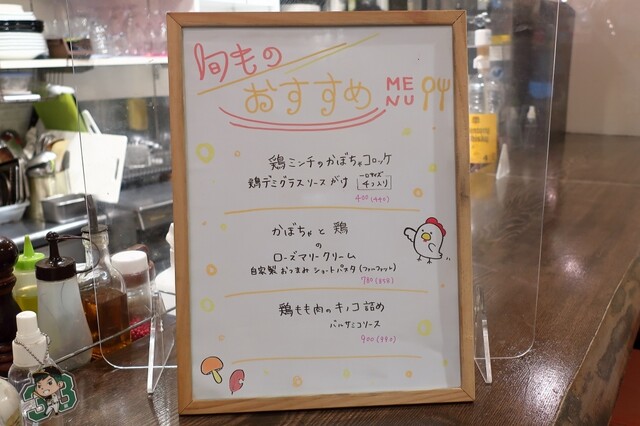 旬もの
おすすめ MENU
鶏ミンチのかぼちゃコロッケ
鶏デミグラスソースがけ 一口サイズ 4コ入り
400(440)
かぼちゃと鶏
の
ローズマリークリーム
自家製 おつまみショートパスタ(ファルファッレ)
780(858)
鶏もも肉のキノコ詰め
バルサミコソース
900(990)
33